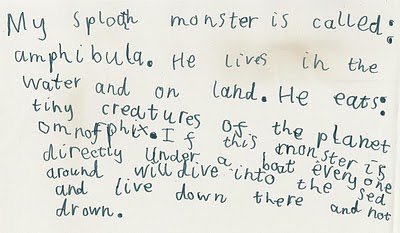 My sploth monster is called:
amphibula. He lives in the
water and on land. He eats:
tiny creatures of the planet
omnofphix. If this monster is
directly under a boat everyone
around will dive into the sea
and live down there and not
drown.